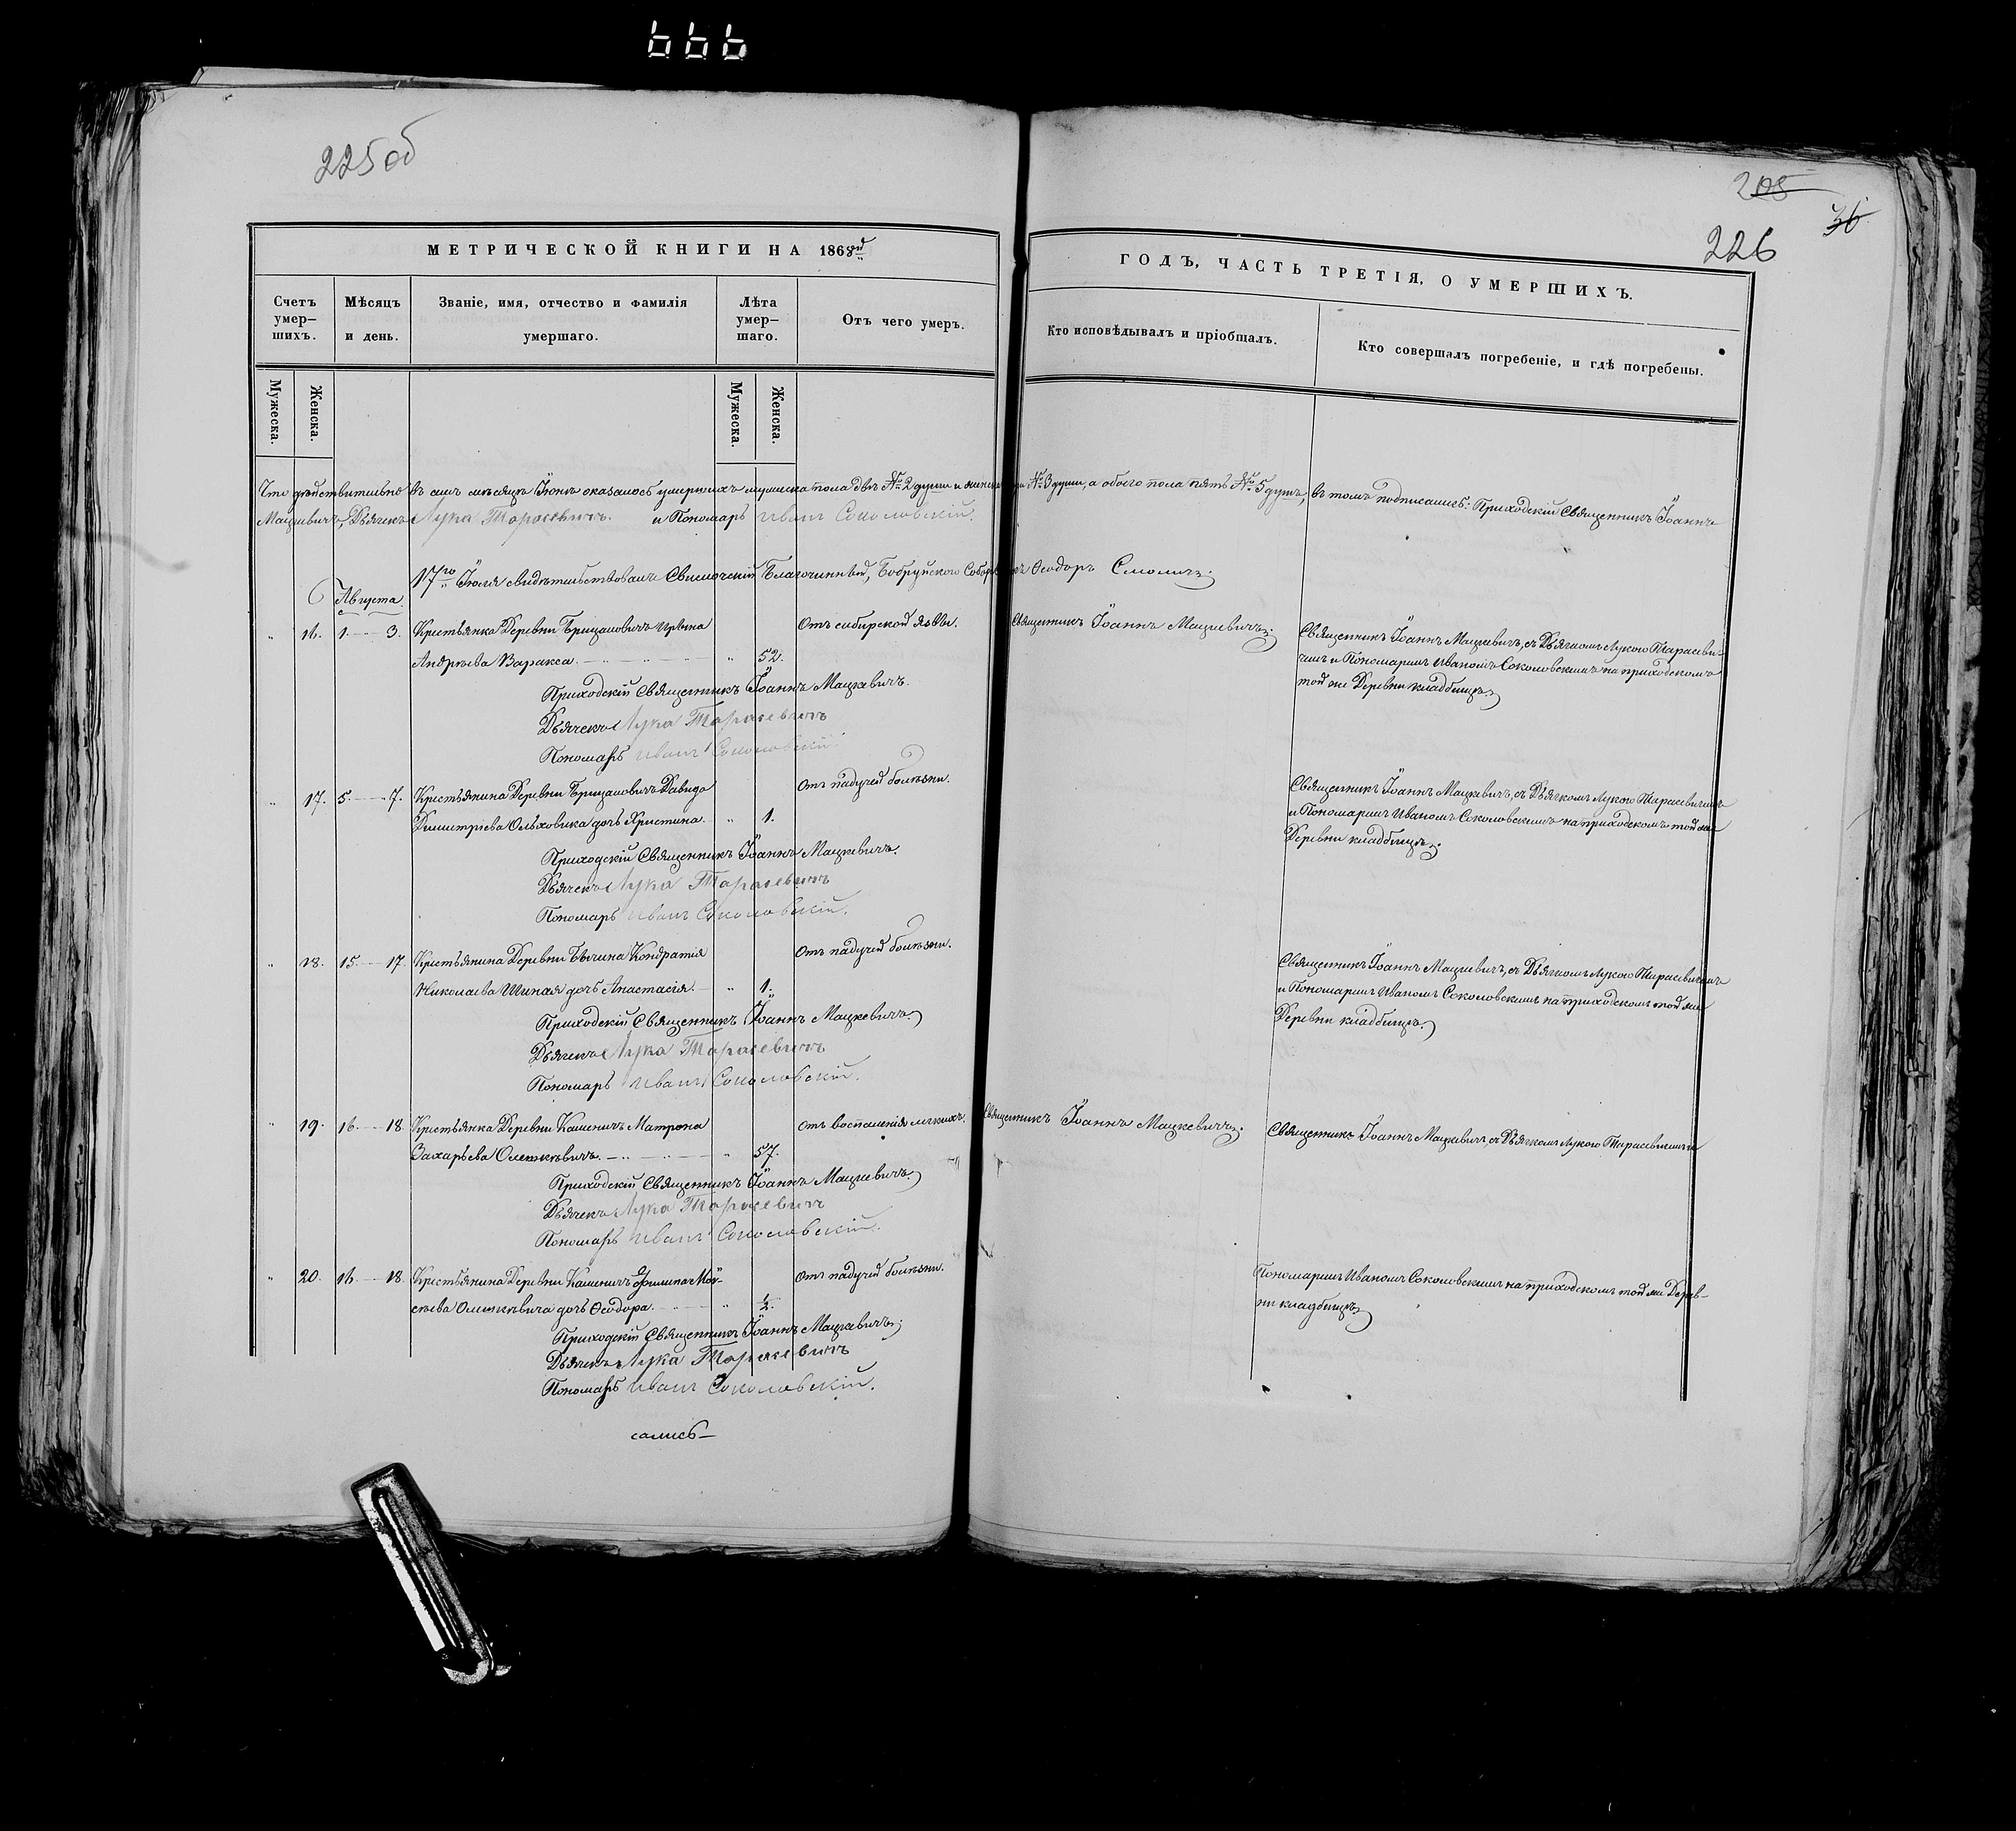 666
225 об
205
36
226
МЕТРИЧЕСКОЙ КНИГИ НА 1868й
ГОДЪ, ЧАСТЬ ТРЕТІЯ, О УМЕРШИХЪ.
Счетъ умер–шихъ.
Мѣсяцъ и день.
Званіе, имя, отчество и фамилія умершаго.
Лѣта умер–шаго.
Отъ чего умеръ.
Кто исповѣдывалъ и пріобщалъ.
Кто совершалъ погребеніе, и гдѣ погребены.
Мужеска.
Женска.
Мужеска.
Женска.
Что дѣйствительно въ семъ мѣсяцѣ Іюнѣ оказалось умершихъ мужеска пола двѣ № 2 души и женска три № 3 души, а обоего пола пять № 5 душъ, въ томъ подписались: Приходскій Священникъ Іоаннъ
Мацкевичъ, Дьячекъ Лука Тарасевичъ и Пономарь Иванъ Соколовскій.
17го Іюля свидѣтельствовалъ Свислочскій Благочинный, Бобруйского Собора Ѳеодоръ Смоличъ
Августа.
" 16. 1 — 3. Крестьянка Деревни Брицаловичъ Ирына Отъ сибирской язвы. Священникъ Іоаннъ Мацкевичъ; Священникъ Іоаннъ Мацкевичъ, съ Дьячкомъ Лукою Тарасеви-
Андреева Варакса. " 52. чемъ и Пономаремъ Иваномъ Соколовскимъ на приходскомъ
той же Деревни кладбищѣ;
Приходскій Священникъ Іоаннъ Мацкевичъ.
Дьячекъ Лука Тарасевичъ
Пономарь Иванъ Соколовскій.
" 17. 5. — 7. Крестьянина Деревни Брицаловичъ Давида Отъ падучей болѣзни. Священникъ Іоаннъ Мацкевичъ, съ Дьячкомъ Лукою Тарасевичемъ
Димитріева Ольховика дочь Христина. " 1. и Пономаремъ Иваномъ Соколовскимъ на приходскомъ той же
Деревни кладбищѣ;
Приходскій Священникъ Іоаннъ Мацкевичъ.
Дьячекъ Лука Тарасевичъ
Пономарь Иванъ Соколовскій.
" 18. 15. — 17. Крестьянина Деревни Бычина Кондратія Отъ падучей болѣзни. Священникъ Іоаннъ Мацкевичъ, съ Дьячкомъ Лукою Тарасевичемъ
Николаева Шипая дочь Анастасія. " 1. и Пономаремъ Иваномъ Соколовскимъ на приходскомъ той же
Деревни кладбищѣ.
Приходскій Священникъ Іоаннъ Мацкевичъ.
Дьячекъ Лука Тарасевичъ
Пономарь Иванъ Соколовскій.
" 19. 16. — 18. Крестьянка Деревни Каменичъ Матрона отъ воспаленія легкихъ. Священникъ Іоаннъ Мацкевичъ; Священникъ Іоаннъ Мацкевичъ, съ Дьячкомъ Лукою Тарасевичемъ и
Захарьева Олешкѣвичъ. " 57.
Приходскій Священникъ Іоаннъ Мацкевичъ.
Дьячекъ Лука Тарасевичъ
Пономарь Иванъ Соколовскій.
" 20. 16. — 18. Крестьянина Деревни Каменичъ Филипа Мои- Отъ падучей болѣзни. Пономаремъ Иваномъ Соколовскимъ на приходскомъ той же Дерев-
сѣева Олешкѣвича дочь Ѳеодора. " ½. ни кладбищѣ;
Приходскій Священникъ Іоаннъ Мацкевичъ;
Дьячекъ Лука Тарасевичъ
Пономарь Иванъ Соколовскій.
сались